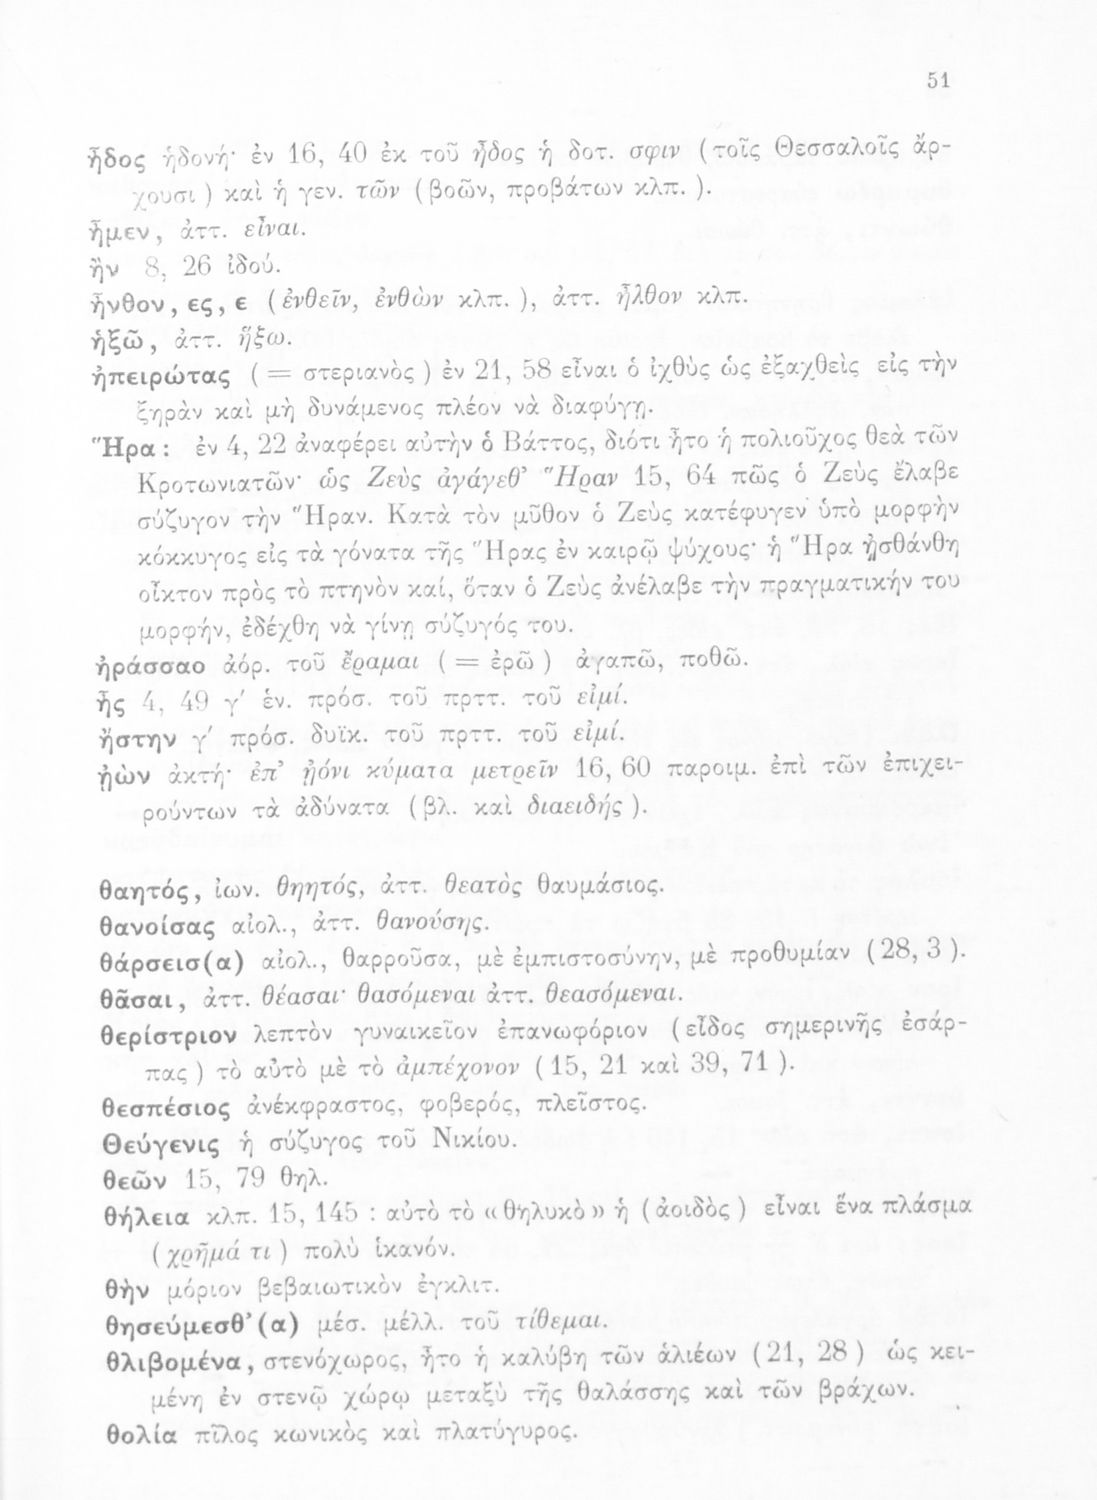 51
ἦδος ἡδονή· ἐν 16, 40 ἐκ τοῦ ἦδος ἡ δοτ. σφιν (τοῖς Θεσσαλοῖς ἄρ-
χουσι) καὶ ἡ γεν. τῶν (βοῶν, προβάτων κλπ.).
ἦμεν, ἀττ. εἶναι.
ἢν 8, 26 ἰδού.
ἦνθον, ες, ε (ἐνθεῖν, ἐνθὼν κλπ.), ἀττ. ἦλθον κλπ.
ἡξῶ, ἀττ. ἥξω.
ἠπειρώτας (= στεριανὸς) ἐν 21, 58 εἶναι ὁ ἰχθὺς ὡς ἐξαχθεὶς εἰς τὴν
ξηρὰν καὶ μὴ δυνάμενος πλέον νὰ διαφύγῃ.
Ἥρα: ἐν 4, 22 ἀναφέρει αὐτὴν ὁ Βάττος, διότι ἦτο ἡ πολιοῦχος θεὰ τῶν
Κροτωνιατῶν· ὡς Ζεὺς ἀγάγεθ' Ἥραν 15, 64 πῶς ὁ Ζεὺς ἔλαβε
σύζυγον τὴν Ἥραν. Κατὰ τὸν μῦθον ὁ Ζεὺς κατέφυγεν ὑπὸ μορφὴν
κόκκυγος εἰς τὰ γόνατα τῆς Ἥρας ἐν καιρῷ ψύχους· ἡ Ἥρα ᾐσθάνθη
οἶκτον πρὸς τὸ πτηνὸν καί, ὅταν ὁ Ζεὺς ἀνέλαβε τὴν πραγματικήν του
μορφήν, ἐδέχθη νὰ γίνῃ σύζυγός του.
ἠράσσαο ἀόρ. τοῦ ἔραμαι (= ἐρῶ) ἀγαπῶ, ποθῶ.
ἦς 4, 49 γ' ἑν. πρόσ. τοῦ πρττ. τοῦ εἰμί.
ἤστην γ' πρόσ. δυϊκ. τοῦ πρττ. τοῦ εἰμί.
ᾐὼν ἀκτή· ἐπ' ᾐόνι κύματα μετρεῖν 16, 60 παροιμ. ἐπὶ τῶν ἐπιχει-
ρούντων τὰ ἀδύνατα (βλ. καὶ διαειδής).
θαητός, ἰων. θηητός, ἀττ. θεατὸς θαυμάσιος.
θανοίσας αἰολ., ἀττ. θανούσης.
θάρσεισ(α) αἰολ., θαρροῦσα, μὲ ἐμπιστοσύνην, μὲ προθυμίαν (28, 3).
θᾶσαι, ἀττ. θέασαι· θασόμεναι ἀττ. θεασόμεναι.
θερίστριον λεπτὸν γυναικεῖον ἐπανωφόριον (εἶδος σημερινῆς ἐσάρ-
πας) τὸ αὐτὸ μὲ τὸ ἀμπέχονον (15, 21 καὶ 39, 71).
θεσπέσιος ἀνέκφραστος, φοβερός, πλεῖστος.
Θεύγενις ἡ σύζυγος τοῦ Νικίου.
θεῶν 15, 79 θηλ.
θήλεια κλπ. 15, 145 : αὐτὸ τὸ «θηλυκὸ» ἡ (ἀοιδὸς) εἶναι ἕνα πλάσμα
(χρῆμά τι) πολὺ ἱκανόν.
θὴν μόριον βεβαιωτικὸν ἐγκλιτ.
θησεύμεσθ'(α) μέσ. μέλλ. τοῦ τίθεμαι.
θλιβομένα, στενόχωρος, ἦτο ἡ καλύβη τῶν ἁλιέων (21, 28) ὡς κει-
μένη ἐν στενῷ χώρῳ μεταξὺ τῆς θαλάσσης καὶ τῶν βράχων.
θολία πῖλος κωνικὸς καὶ πλατύγυρος.